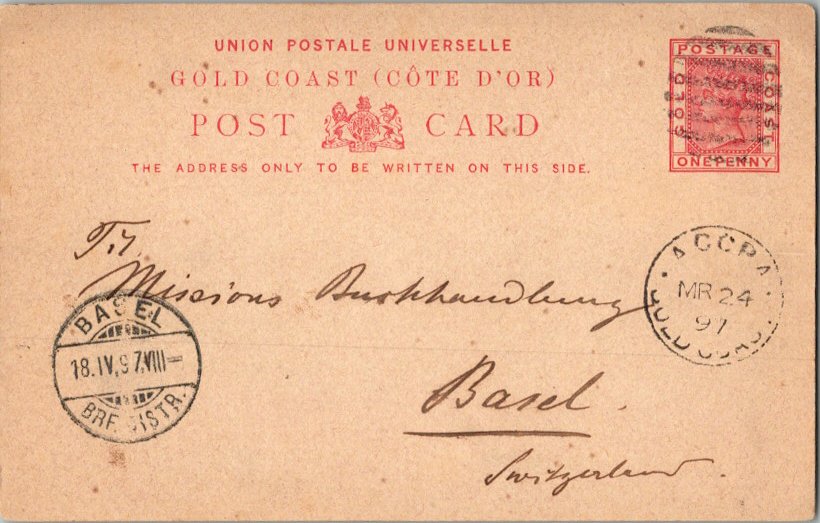 UNION POSTALE UNIVERSELLE
GOLD COAST (CÔTE D'OR)
POST CARD
THE ADDRESS ONLY TO BE WRITTEN ON THIS SIDE.
POSTAGE
GOLD
COAST
ONE PENNY
Tit
Missions Buchhandlung
Basel.
Switzerland.
ACCRA
MR 24
97
GOLD COAST
BASEL
18.IV.97.VIII